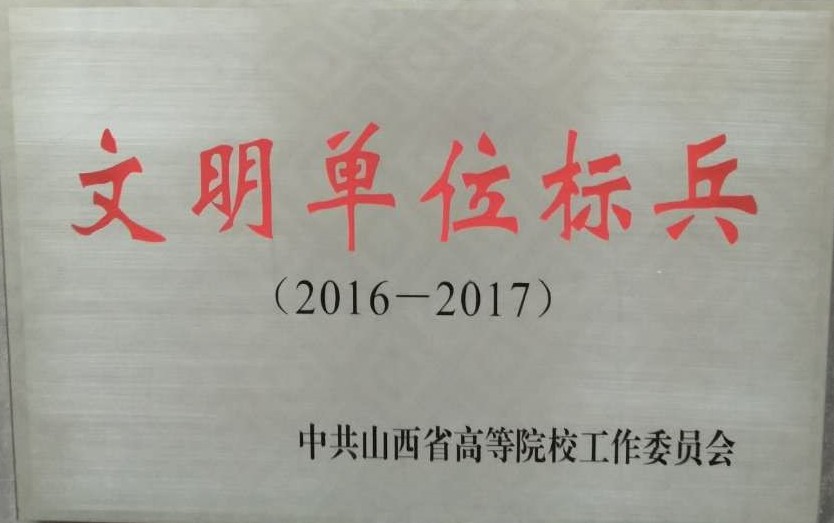 文明单位标兵
（2016－2017）
中共山西省高等院校工作委员会